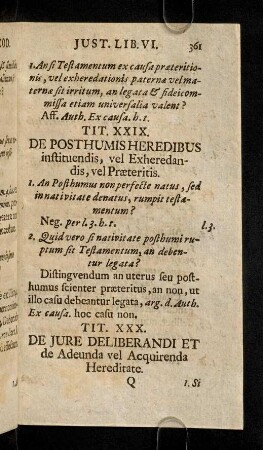 JUST. LIB. VI. 361
1. An si Testamentum ex causa præteritio-
nis, vel exheredationis paternæ vel ma-
ternæ sit irritum, an legata & fideicom-
missa etiam universalia valent?
Aff. Auth. Ex causa. h. t.
TIT. XXIX.
DE POSTHUMIS HEREDIBUS
instituendis, vel Exheredan-
dis, vel Præteritis.
1. An Posthumus non perfecte natus, sed
in nativitate denatus, rumpit testa-
mentum?
Neg. per l. 3. h. t. l.3.
2. Quid vero si nativitate posthumi ru-
ptum sit Testamentum, an deben-
tur legata?
Distingvendum an uterus seu post-
humus scienter præteritus, an non, ut
illo casu debeantur legata, arg. d. Auth.
Ex causa. hoc casu non.
TIT. XXX.
DE JURE DELIBERANDI ET
de Adeunda vel Acquirenda
Hereditate.
Q 1. Si